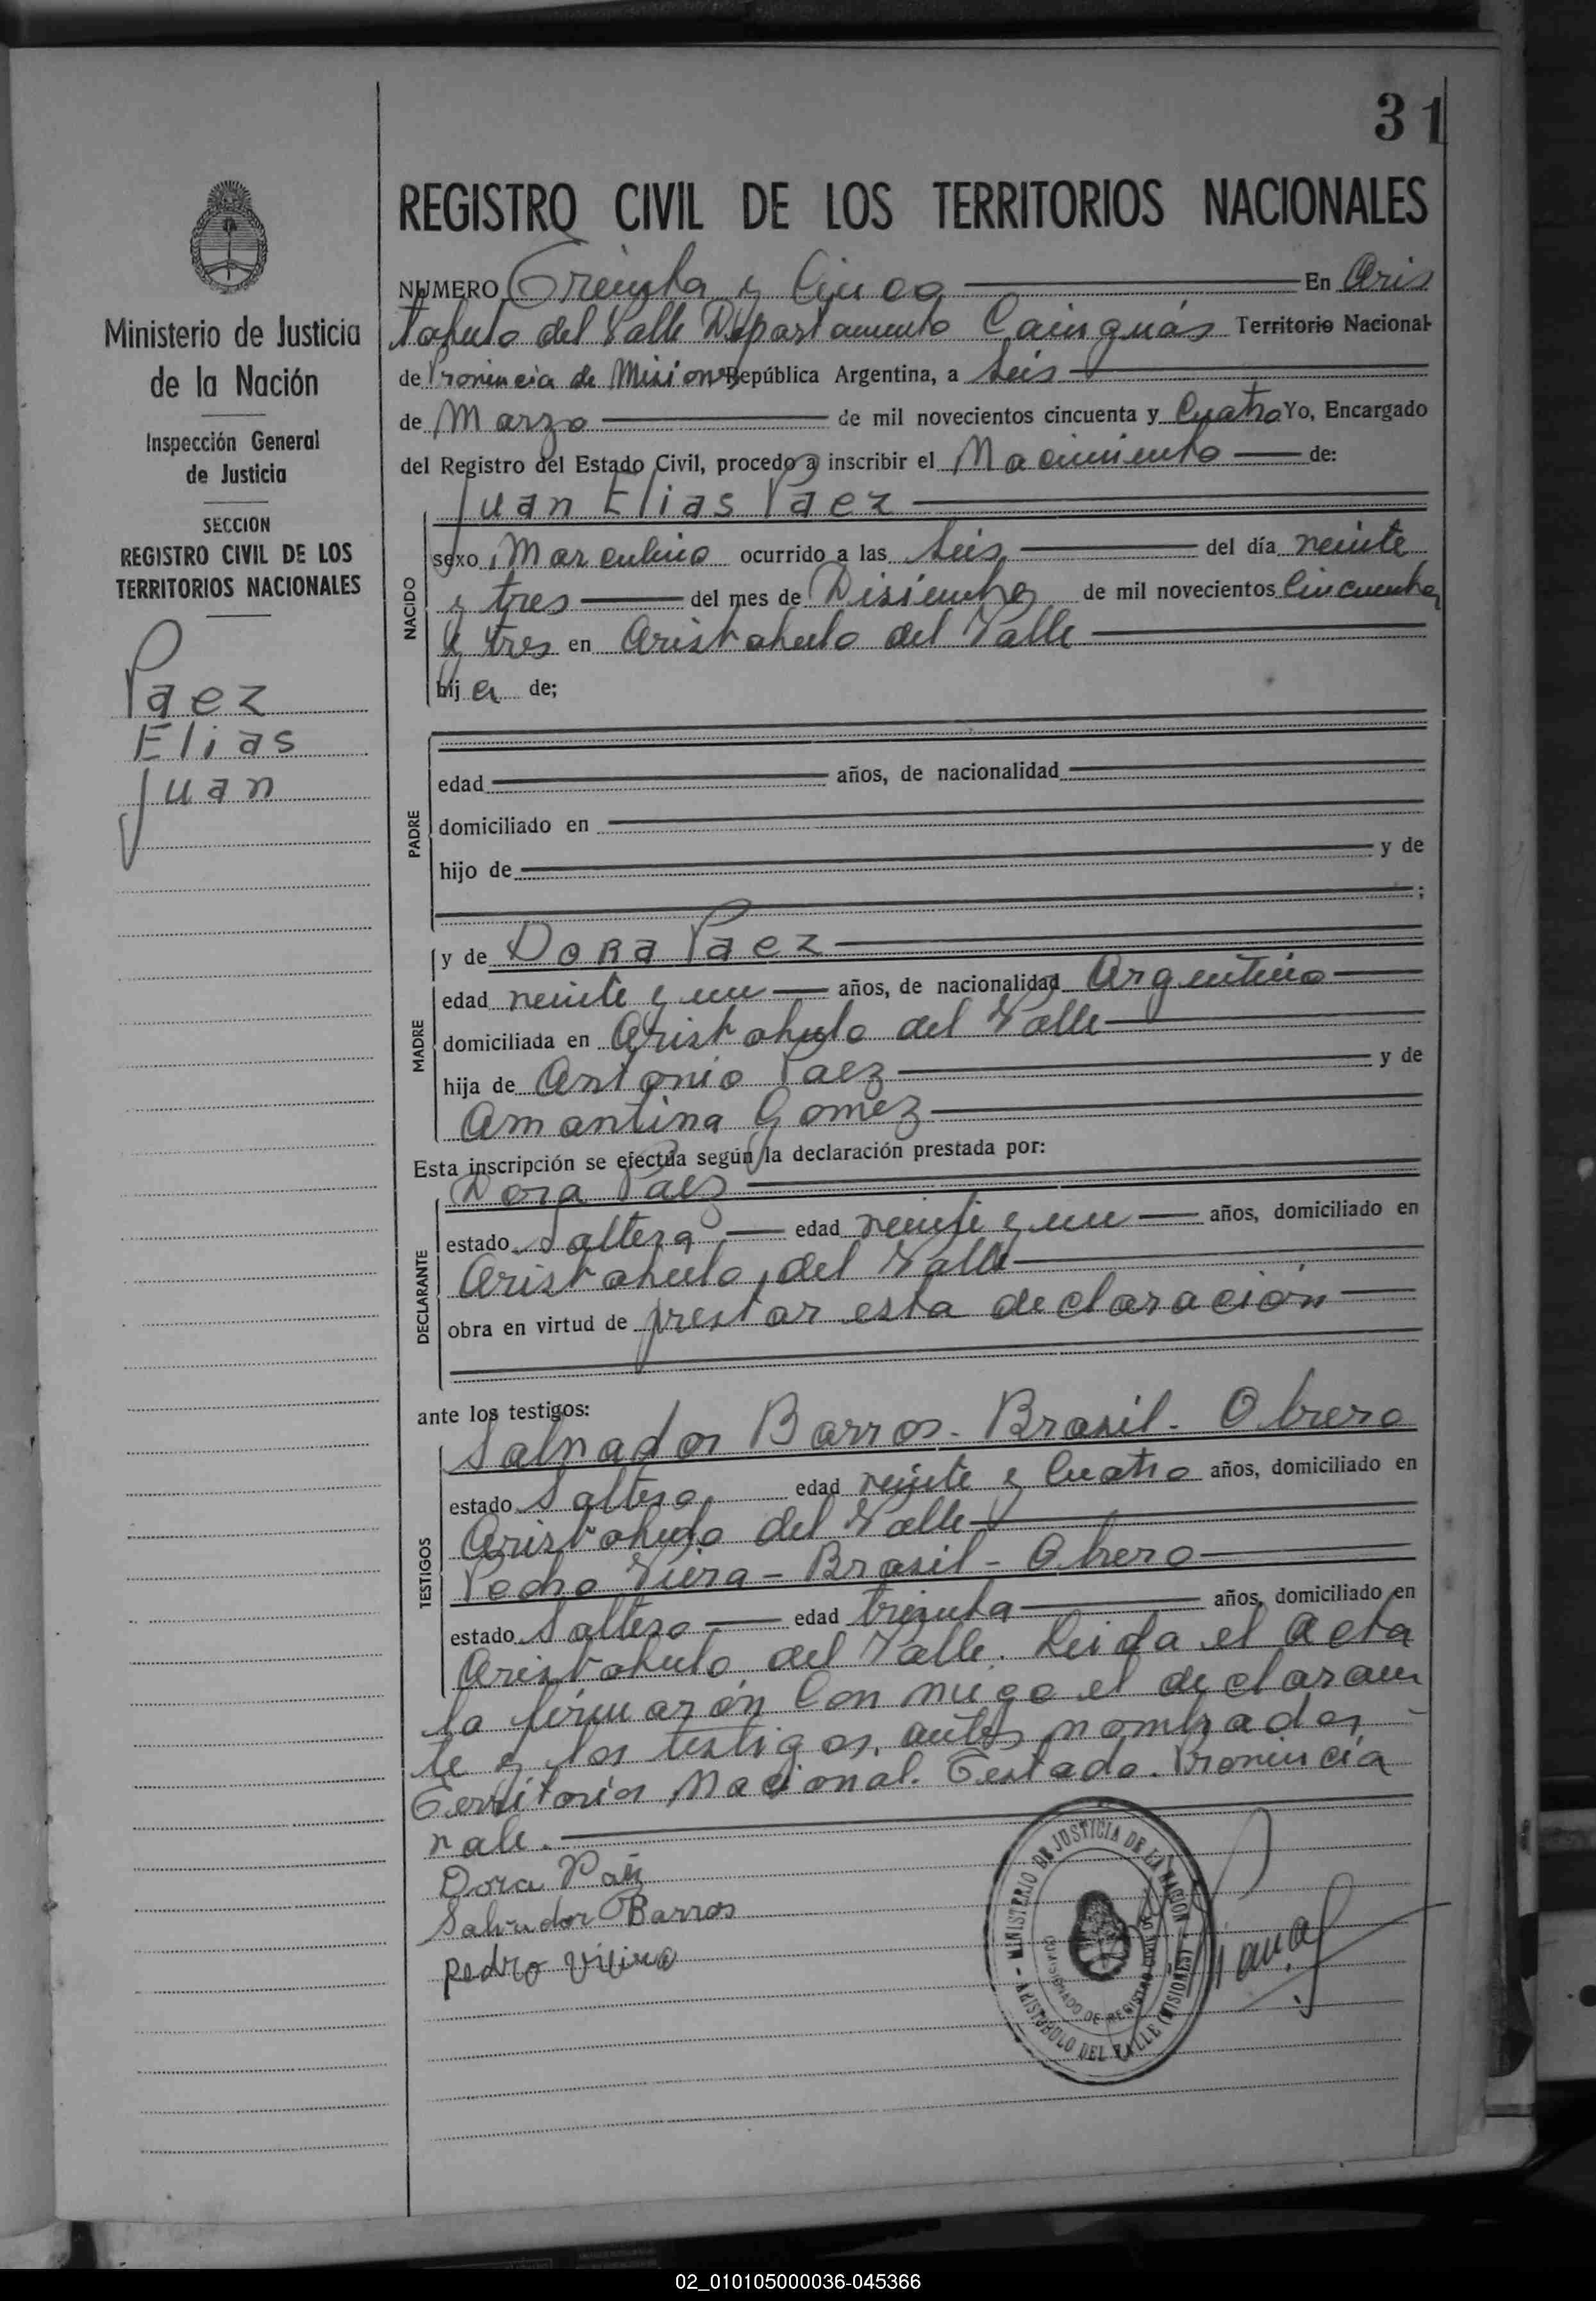 31
REGISTRO CIVIL DE LOS TERRITORIOS NACIONALES
Ministerio de Justicia
de la Nación
Inspección General
de Justicia
SECCION
REGISTRO CIVIL DE LOS
TERRITORIOS NACIONALES
Paez
Elias
Juan
NUMERO Treinta y Cinco En Aris
tobulo del Valle Departamento Cainguás Territorio Nacional
de Provincia de Misiones República Argentina, a Seis
de Marzo de mil novecientos cincuenta y Cuatro Yo, Encargado
del Registro del Estado Civil, procedo a inscribir el Nacimiento de:
NACIDO
Juan Elias Paez
sexo Masculino ocurrido a las Seis del día veinte
y tres del mes de Disiembre de mil novecientos Cincuenta
y tres en Aristobulo del Valle
hij a de;
PADRE
edad años, de nacionalidad
domiciliado en
hijo de y de
;
MADRE
y de Dora Paez
edad veinte y un años, de nacionalidad Argentino
domiciliada en Aristobulo del Valle
hija de Antonio Paez y de
Amantina Gomez
Esta inscripción se efectúa según la declaración prestada por:
DECLARANTE
Dora Paez
estado Soltera edad veinte y un años, domiciliado en
Aristobulo del Valle
obra en virtud de prestar esta declaración
ante los testigos:
TESTIGOS
Salvador Barros - Brasil - Obrero
estado Soltero edad veinte y Cuatro años, domiciliado en
Aristobulo del Valle
Pedro Viera - Brasil - Obrero
estado Soltero edad treinta años, domiciliado en
Aristobulo del Valle. Leida el Acta
la firmarón Con migo el declaran
te y los testigos, antes nombrados -
Territorio Nacional. Testado. Provincia
vale.
Dora Paéz
Salvador Barros
Pedro
- MINISTERIO DE JUSTICIA DE LA NACION -
ARISTOBULO DEL VALLE (MISIONES)
COMISIONADO DE REGISTRO CIVIL
02_010105000036-045366